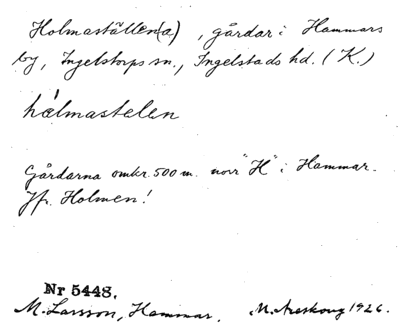 Holmaställen(a), gårdar i Hammars
by, Ingelstorps sn., Ingelstads hd. (K.)
hólmastelen
Gårdarna omkr. 500 m. norr "H" i Hammar.
Jfr. Holmen!
Nr 5448.
M. Larsson, Hammar. M. Areskoug 1926.